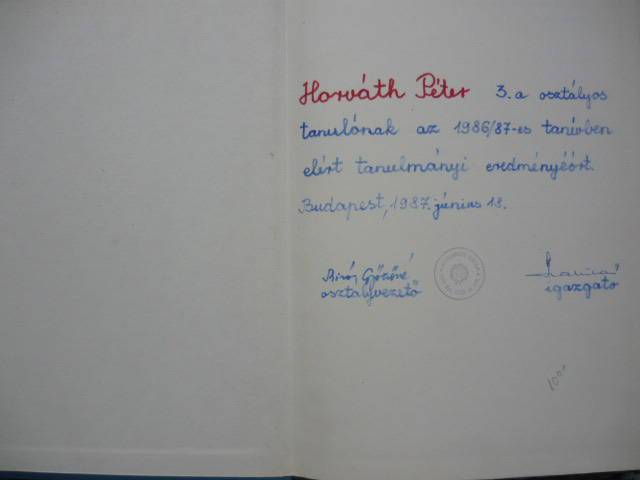 Horváth Péter 3.a osztályos
tanulónak az 1986/87-es tanévben
elért tanulmányi eredményéért.
Budapest, 1987. június 18.
Győzőné
osztályvezető
igazgató